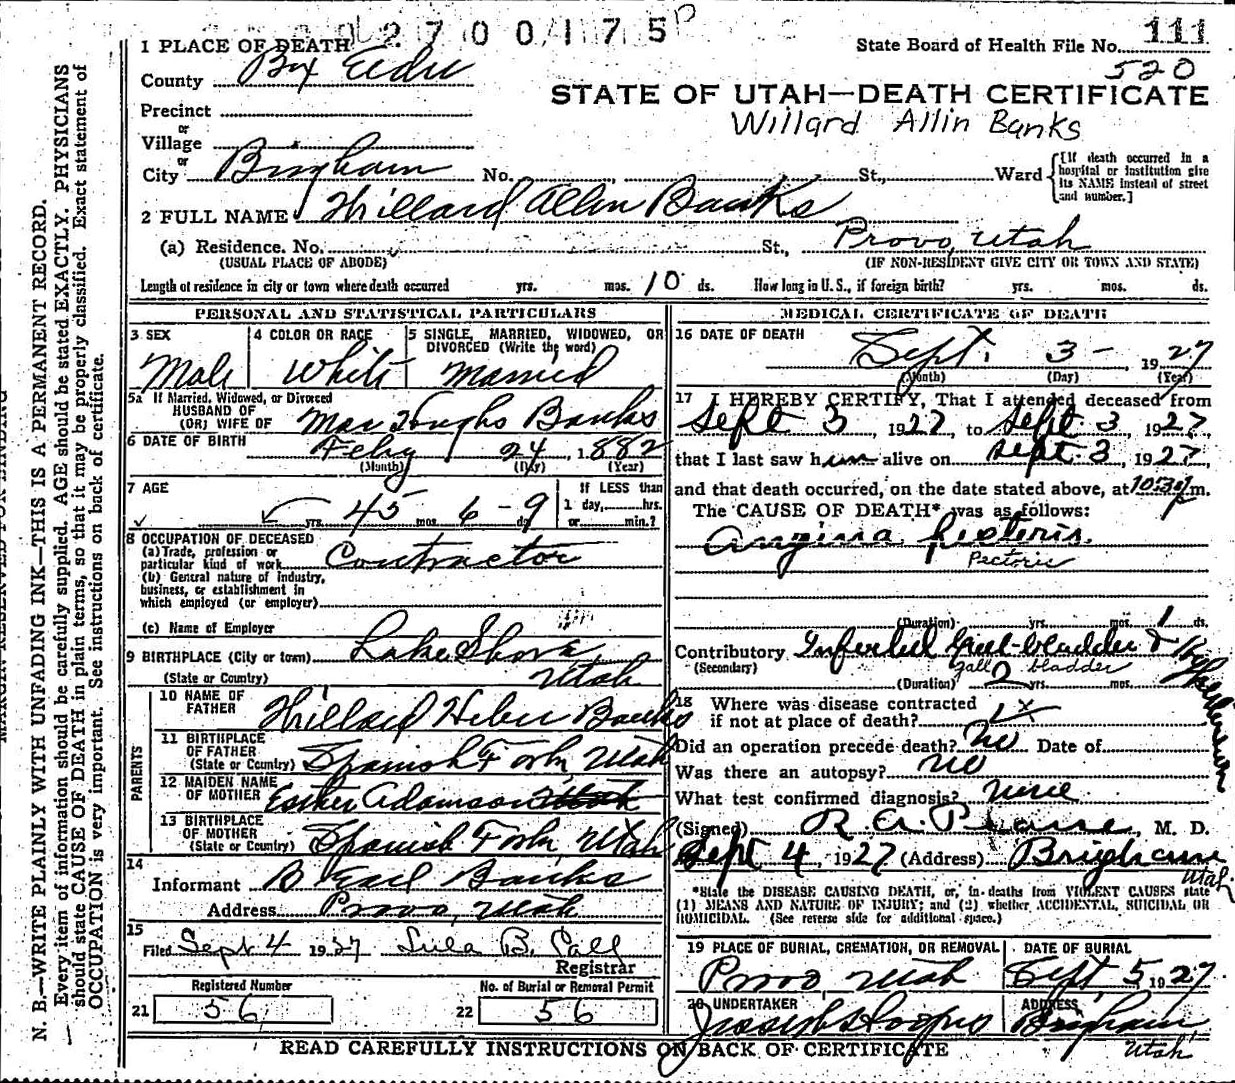 2700175P
111
1 PLACE OF DEATH
State Board of Health File No.
520
County Box Elder
STATE OF UTAH—DEATH CERTIFICATE
Precinct
Willard Allin Banks
or
Village
or
City Brigham No. St., Ward {[If death occurred in a hospital or institution give its NAME instead of street and number.]
2 FULL NAME Willard Allin Banks
(a) Residence. No. St., Provo, Utah
(USUAL PLACE OF ABODE) (IF NON-RESIDENT GIVE CITY OR TOWN AND STATE)
Length of residence in city or town where death occurred yrs. mos. 10 ds. How long in U. S., if foreign birth? yrs. mos. ds.
PERSONAL AND STATISTICAL PARTICULARS
3 SEX
Male
4 COLOR OR RACE
White
5 SINGLE, MARRIED, WIDOWED, OR
DIVORCED (Write the word)
Married
5a If Married, Widowed, or Divorced
HUSBAND OF
(OR) WIFE OF
Mae Banks
6 DATE OF BIRTH Feby 24, 1882
(Month) (Day) (Year)
7 AGE
45 yrs. 6 mos. - 9 ds.
If LESS than
1 day, hrs.
or min.?
8 OCCUPATION OF DECEASED
(a) Trade, profession or
particular kind of work Contractor
(b) General nature of industry,
business, or establishment in
which employed (or employer)
(c) Name of Employer
9 BIRTHPLACE (City or town) Lake Shore
(State or Country) Utah
PARENTS
10 NAME OF
FATHER Willard Heber Banks
11 BIRTHPLACE
OF FATHER
(State or Country) Spanish Fork, Utah
12 MAIDEN NAME
OF MOTHER Esther Adamson
13 BIRTHPLACE
OF MOTHER
(State or Country) Spanish Fork, Utah
14
Informant B Earl Banks
Address Provo, Utah
15
Filed Sept 4 1927 Lula B. Call
Registrar
Registered Number
21 56
No. of Burial or Removal Permit
22 56
MEDICAL CERTIFICATE OF DEATH
16 DATE OF DEATH
Sept. 3 - 1927
(Month) (Day) (Year)
17 I HEREBY CERTIFY, That I attended deceased from
Sept 3, 1927, to Sept. 3, 1927,
that I last saw him alive on Sept. 3, 1927,
and that death occurred, on the date stated above, at 10:30 p m.
The CAUSE OF DEATH* was as follows:
Angina Pectoris.
Pectoris
(Duration) yrs. mos. 1 ds.
Contributory Infected Gall-bladder &
(Secondary) gall bladder
(Duration) 2 yrs. mos.
18 Where was disease contracted
if not at place of death?
Did an operation precede death? No Date of
Was there an autopsy? no
What test confirmed diagnosis? none
(Signed) R. A. Pearse, M. D.
Sept 4, 1927 (Address) Brigham
Utah
*State the DISEASE CAUSING DEATH, or, in deaths from VIOLENT CAUSES state
(1) MEANS AND NATURE OF INJURY; and (2) whether ACCIDENTAL, SUICIDAL OR
HOMICIDAL. (See reverse side for additional space.)
19 PLACE OF BURIAL, CREMATION, OR REMOVAL
Provo, Utah
DATE OF BURIAL
Sept 5, 1927
20 UNDERTAKER
ADDRESS
Brigham
Utah
READ CAREFULLY INSTRUCTIONS ON BACK OF CERTIFICATE
MARGIN RESERVED FOR BINDING
N. B.—WRITE PLAINLY WITH UNFADING INK—THIS IS A PERMANENT RECORD.
Every item of information should be carefully supplied. AGE should be stated EXACTLY. PHYSICIANS
should state CAUSE OF DEATH in plain terms, so that it may be properly classified. Exact statement of
OCCUPATION is very important. See instructions on back of certificate.